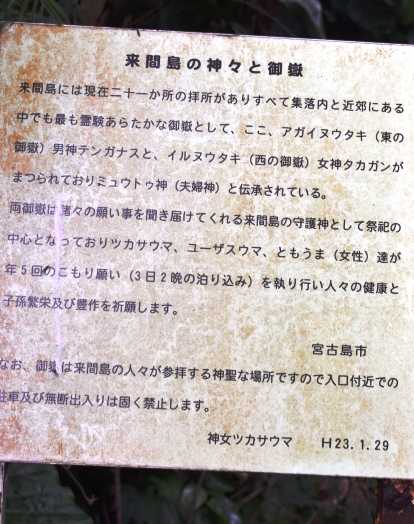 来間島の神々と御嶽
来間島には現在二十一か所の拝所がありすべて集落内と近郊にある
中でも最も霊験あらたかな御嶽として、ここ、アガイヌウタキ（東の
御嶽）男神テンガナスと、イルヌウタキ（西の御嶽）女神タカガンが
まつられておりミュウトゥ神（夫婦神）と伝承されている。
両御嶽は諸々の願い事を聞き届けてくれる来間島の守護神として祭祀の
中心となっておりツカサウマ、ユーザスウマ、ともうま（女性）達が
年5回のこもり願い（3日2晩の泊り込み）を執り行い人々の健康と
子孫繁栄及び豊作を祈願します。
宮古島市
なお、御嶽は来間島の人々が参拝する神聖な場所ですので入口付近での
駐車及び無断出入りは固く禁止します。
神女ツカサウマ　H23.1.29